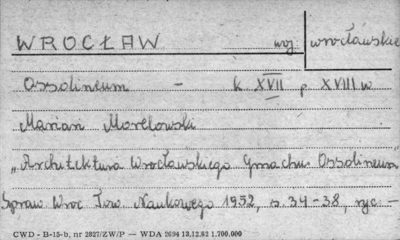 WROCŁAW woj. wrocławskie
Ossolineum - k XVII p XVIII w
Marian Morelowski
"Architektura Wrocławskiego Gmachu Ossolineum
Spraw Wroc Tow. Naukowego 1952, s. 34-38, ryc -
CWD - B-15-b, nr 2827/ZW/P — WDA 2694 18.12.62 1.700.000